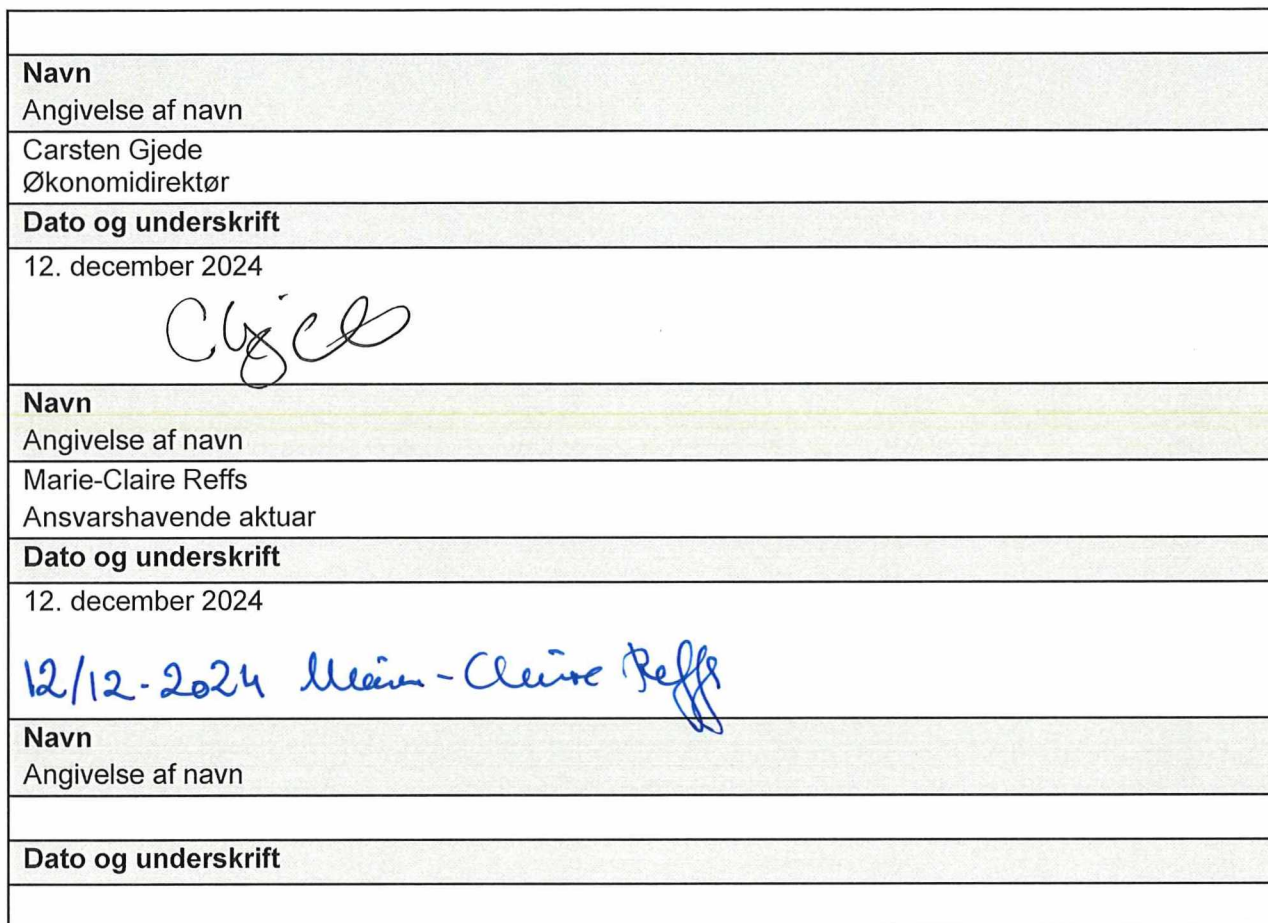 Navn
Angivelse af navn
Carsten Gjede
Økonomidirektør
Dato og underskrift
12. december 2024
Navn
Angivelse af navn
Marie-Claire Reffs
Ansvarshavende aktuar
Dato og underskrift
12. december 2024
12/12-2024 Marie-Claire Reffs
Navn
Angivelse af navn
Dato og underskrift